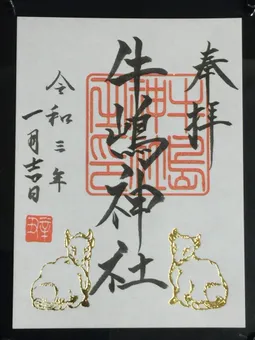 奉拝
牛嶋神社
令和三年
一月吉日
辛丑